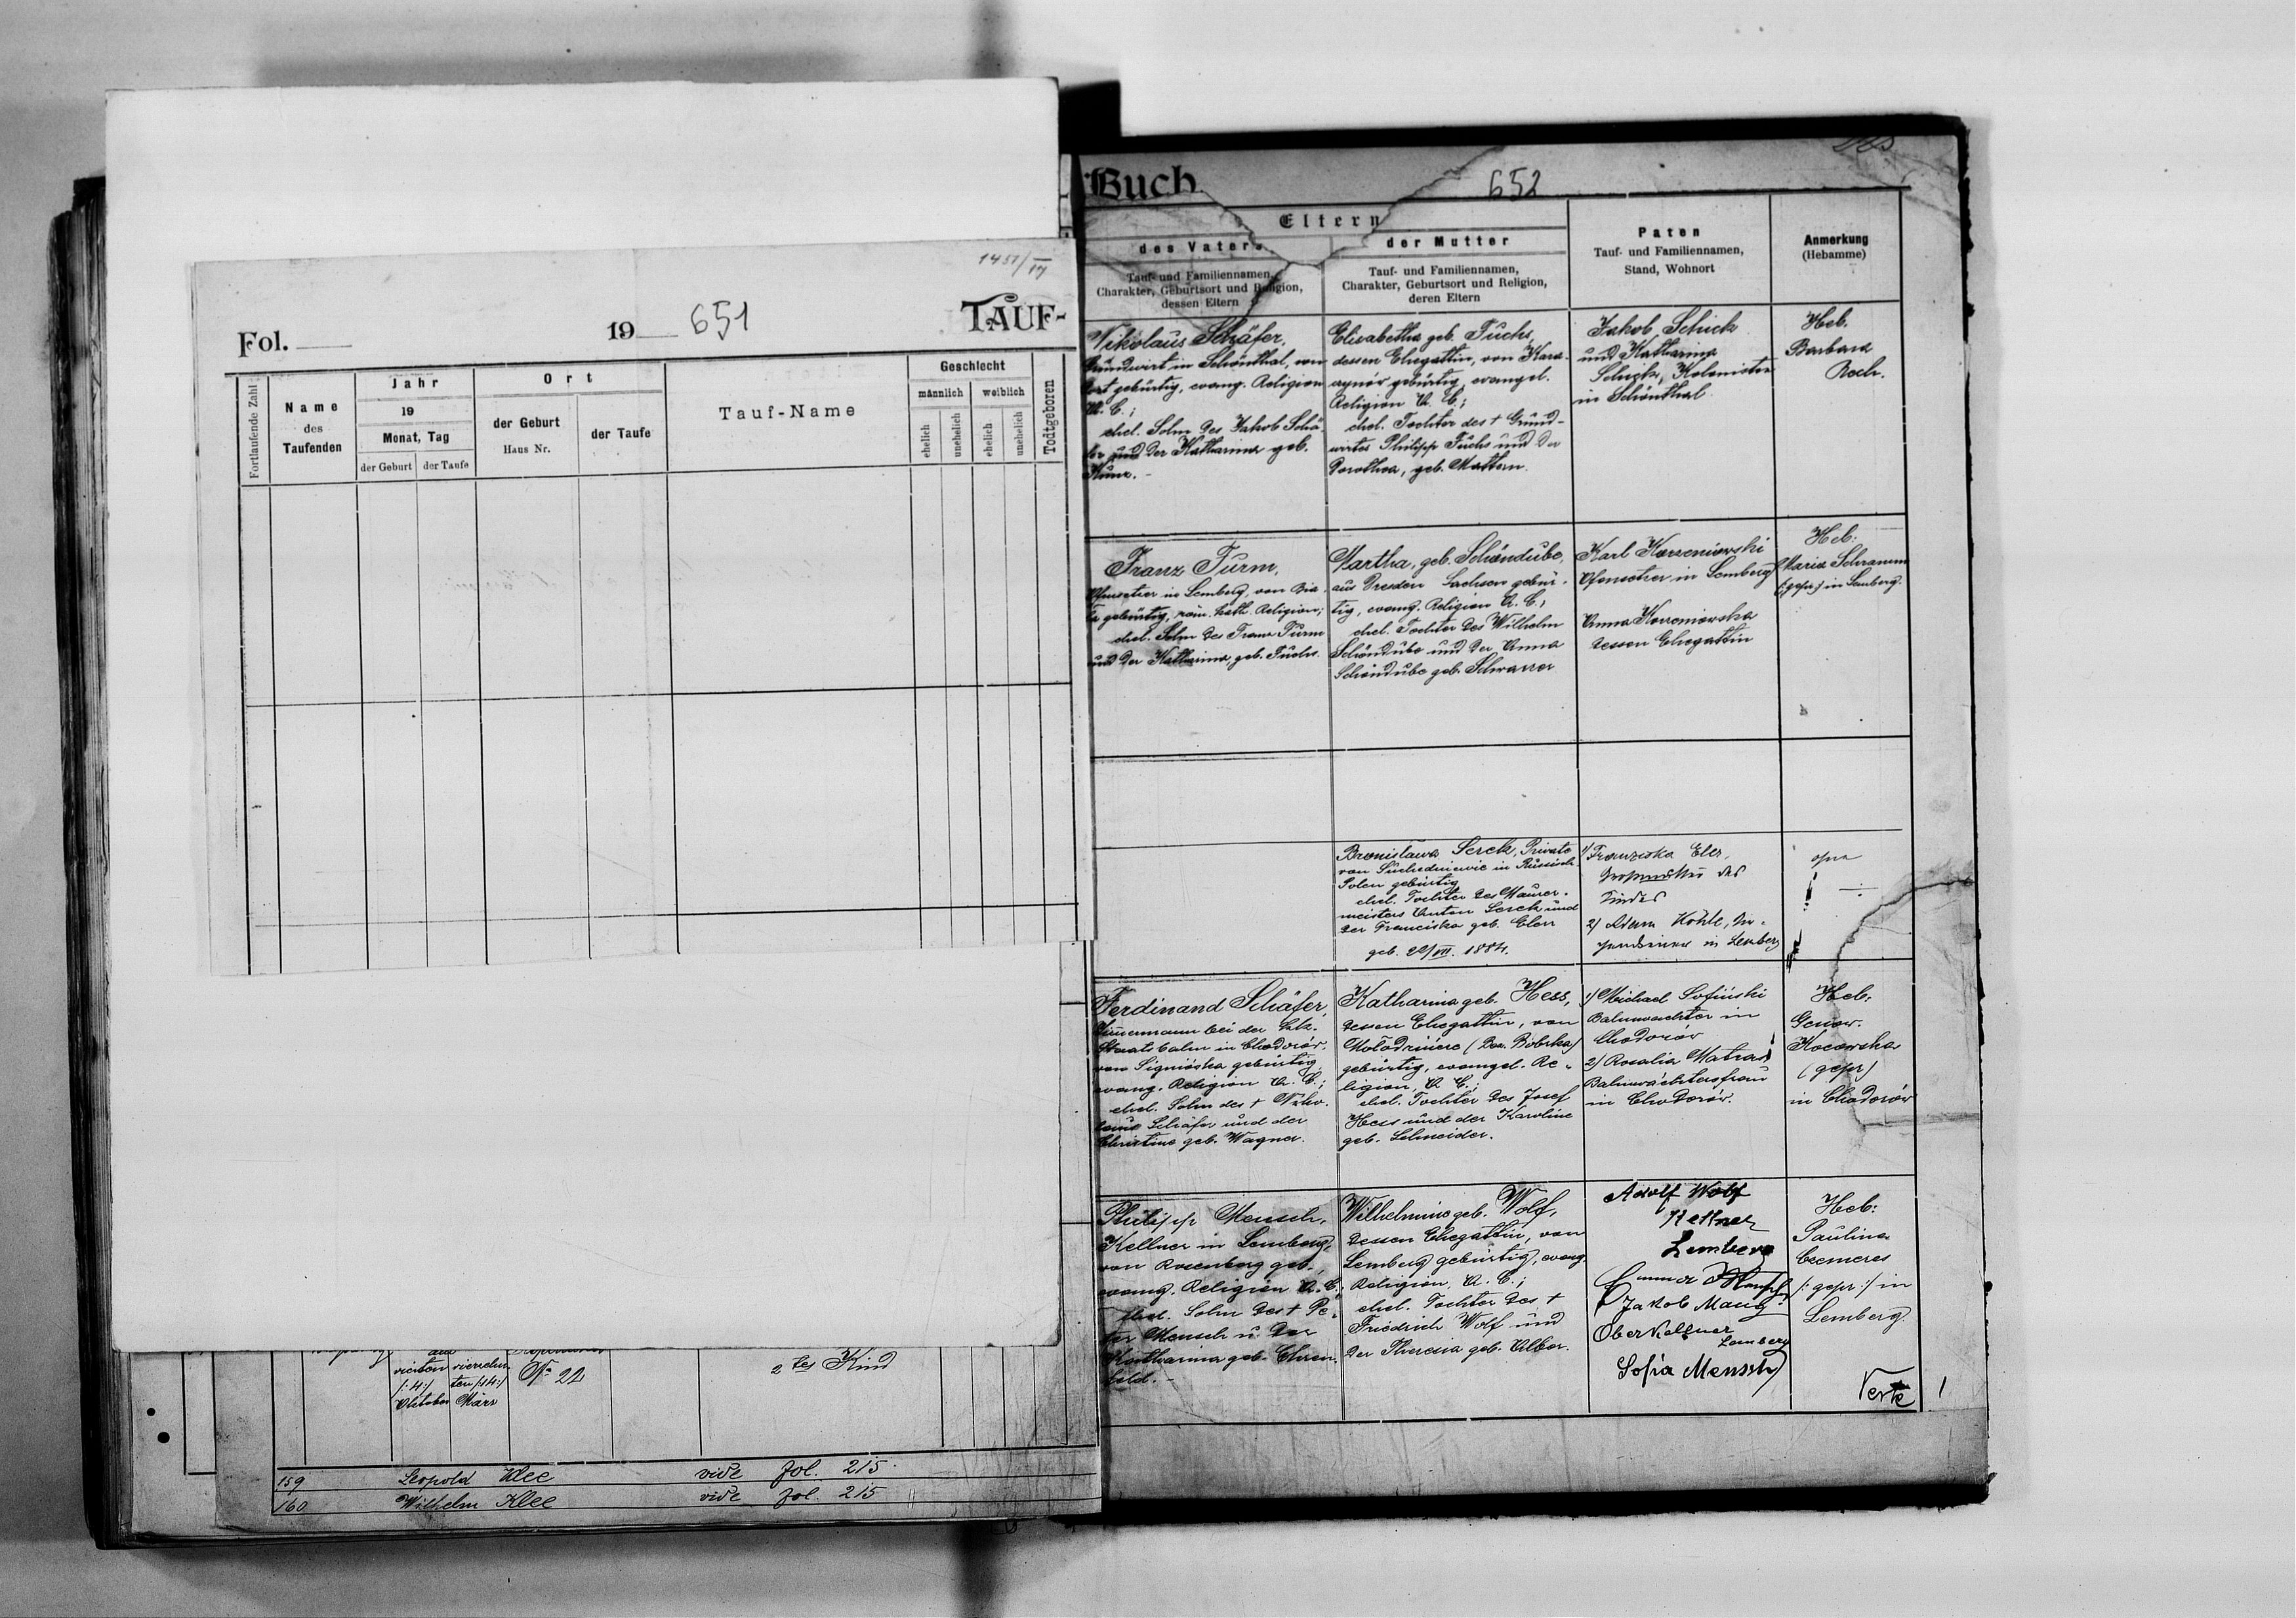 1451/IV
Fol.
19
651
TAUF-
Fortlaufende Zahl
Name
des
Taufenden
Jahr
19
Monat, Tag
der Geburt
der Taufe
Ort
der Geburt
Haus Nr.
der Taufe
Tauf-Name
Geschlecht
männlich
weiblich
ehelich
unehelich
ehelich
unehelich
Todtgeboren
vierten vierzehn
/:4:/ ten /:14:/
Oktober März
No 22
2tes Kind
159 Leopold Klee vide fol. 215
160 Wilhelm Klee vide fol. 215
Buch
652
Eltern
des Vaters
Tauf- und Familiennamen,
Charakter, Geburtsort und Religion,
dessen Eltern
der Mutter
Tauf- und Familiennamen,
Charakter, Geburtsort und Religion,
deren Eltern
Paten
Tauf- und Familiennamen,
Stand, Wohnort
Anmerkung
(Hebamme)
Nikolaus Schäfer,
Grundwirt in Schönthal, von
dort gebürtig, evang. Religion
A. C.;
ehel. Sohn des Jakob Schä-
fer und der Katharina geb.
Kunz.
Elisabetha geb. Fuchs,
dessen Ehegattin, von Kara-
czynów gebürtig, evangel.
Religion A. C.;
ehel. Tochter des + Grund-
wirtes Philipp Fuchs und der
Dorothea, geb. Mattern.
Jakob Schick
und Katharina
Schick, Kolonisten
in Schönthal.
Heb.
Barbara
Rech.
Franz Turm,
Ofensetzer in Lemberg, von Bia-
la gebürtig, röm. kath. Religion;
ehel. Sohn des Franz Turm
und der Katharina, geb. Fuchs.
Martha, geb. Schöndube,
aus Dresden Sachsen gebür-
tig, evang. Religion A. C.;
ehel. Tochter des Wilhelm
Schöndube und der Anna
Schöndube geb. Schwarzer
Karl Korzeniowski
Ofensetzer in Lemberg
Anna Korzeniowska
dessen Ehegattin
Heb:
Maria Schramm
(gepr.) in Lemberg.
Bronisława Serek, Private
von Suchedniewic in Russisch
Polen gebürtig
ehel. Tochter des Maurer-
meisters Anton Serek und
der Franciska geb. Elerr
geb. 22/VII. 1884.
1) Franziska Eler,
Großmutter des
Kindes
2) Adam Köhle,
in Lemberg
Ferdinand Schäfer,
Zimmermann bei der
Staatsbahn in Chodorów,
von Signiówka gebürtig,
evang. Religion A. C.;
ehel. Sohn des + Niko-
laus Schäfer und der
Christine geb. Wagner.
Katharina geb. Hess,
dessen Ehegattin, von
(Bez. Bóbrka)
gebürtig, evangel. Re-
ligion, A. C.;
ehel. Tochter des Josef
Hess und der Karoline
geb. Schneider.
1) Michael Sofiński
Bahnwächter in
Chodorów
2) Rosalia Matras
Bahnwächtersfrau
in Chodorów.
Heb:
Genow.
Kocowska
(gepr)
in Chodorów
Philipp Mensch,
Kellner in Lemberg,
von Rosenberg geb.,
evang. Religion A. C.
ehel. Sohn des + Pe-
ter Mensch u. der
Katharina geb. Ehren-
feld.
Wilhelmine geb. Wolf,
dessen Ehegattin, von
Lemberg gebürtig, evang.
Religion, A. C.;
ehel. Tochter des +
Friedrich Wolf und
der Theresia geb. Alber.
Adolf Wolf
Kellner
Lemberg
Jakob Maug
Oberkellner
Lemberg
Sofia Mensch
Heb:
Paulina
Czemeres
/: gepr :/ in
Lemberg
Verte